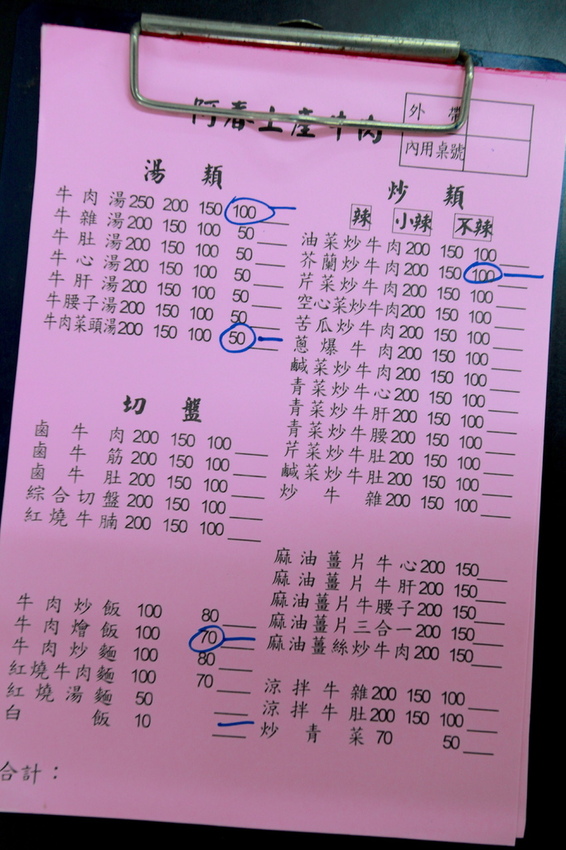 阿春土產牛肉
外帶
內用桌號
湯類
牛肉湯 250 200 150 100
牛雜湯 200 150 100 50
牛肚湯 200 150 100 50
牛心湯 200 150 100 50
牛肝湯 200 150 100 50
牛腰子湯 200 150 100 50
牛肉菜頭湯 200 150 100 50
切盤
鹵牛肉 200 150 100
鹵牛筋 200 150 100
鹵牛肚 200 150 100
綜合切盤 200 150 100
紅燒牛腩 200 150 100
牛肉炒飯 100 80
牛肉燴飯 100 70
牛肉炒麵 100 80
紅燒牛肉麵 100 70
紅燒湯麵 50
白飯 10
合計：
炒類
辣 小辣 不辣
油菜炒牛肉 200 150 100
芥蘭炒牛肉 200 150 100
芹菜炒牛肉 200 150 100
空心菜炒牛肉 200 150 100
苦瓜炒牛肉 200 150 100
蔥爆牛肉 200 150 100
鹹菜炒牛肉 200 150 100
青菜炒牛心 200 150 100
青菜炒牛肝 200 150 100
青菜炒牛腰 200 150 100
芹菜炒牛肚 200 150 100
鹹菜炒牛肚 200 150 100
炒牛雜 200 150 100
麻油薑片牛心 200 150
麻油薑片牛肝 200 150
麻油薑片牛腰子 200 150
麻油薑片三合一 200 150
麻油薑絲炒牛肉 200 150
涼拌牛雜 200 150 100
涼拌牛肚 200 150 100
炒青菜 70 50